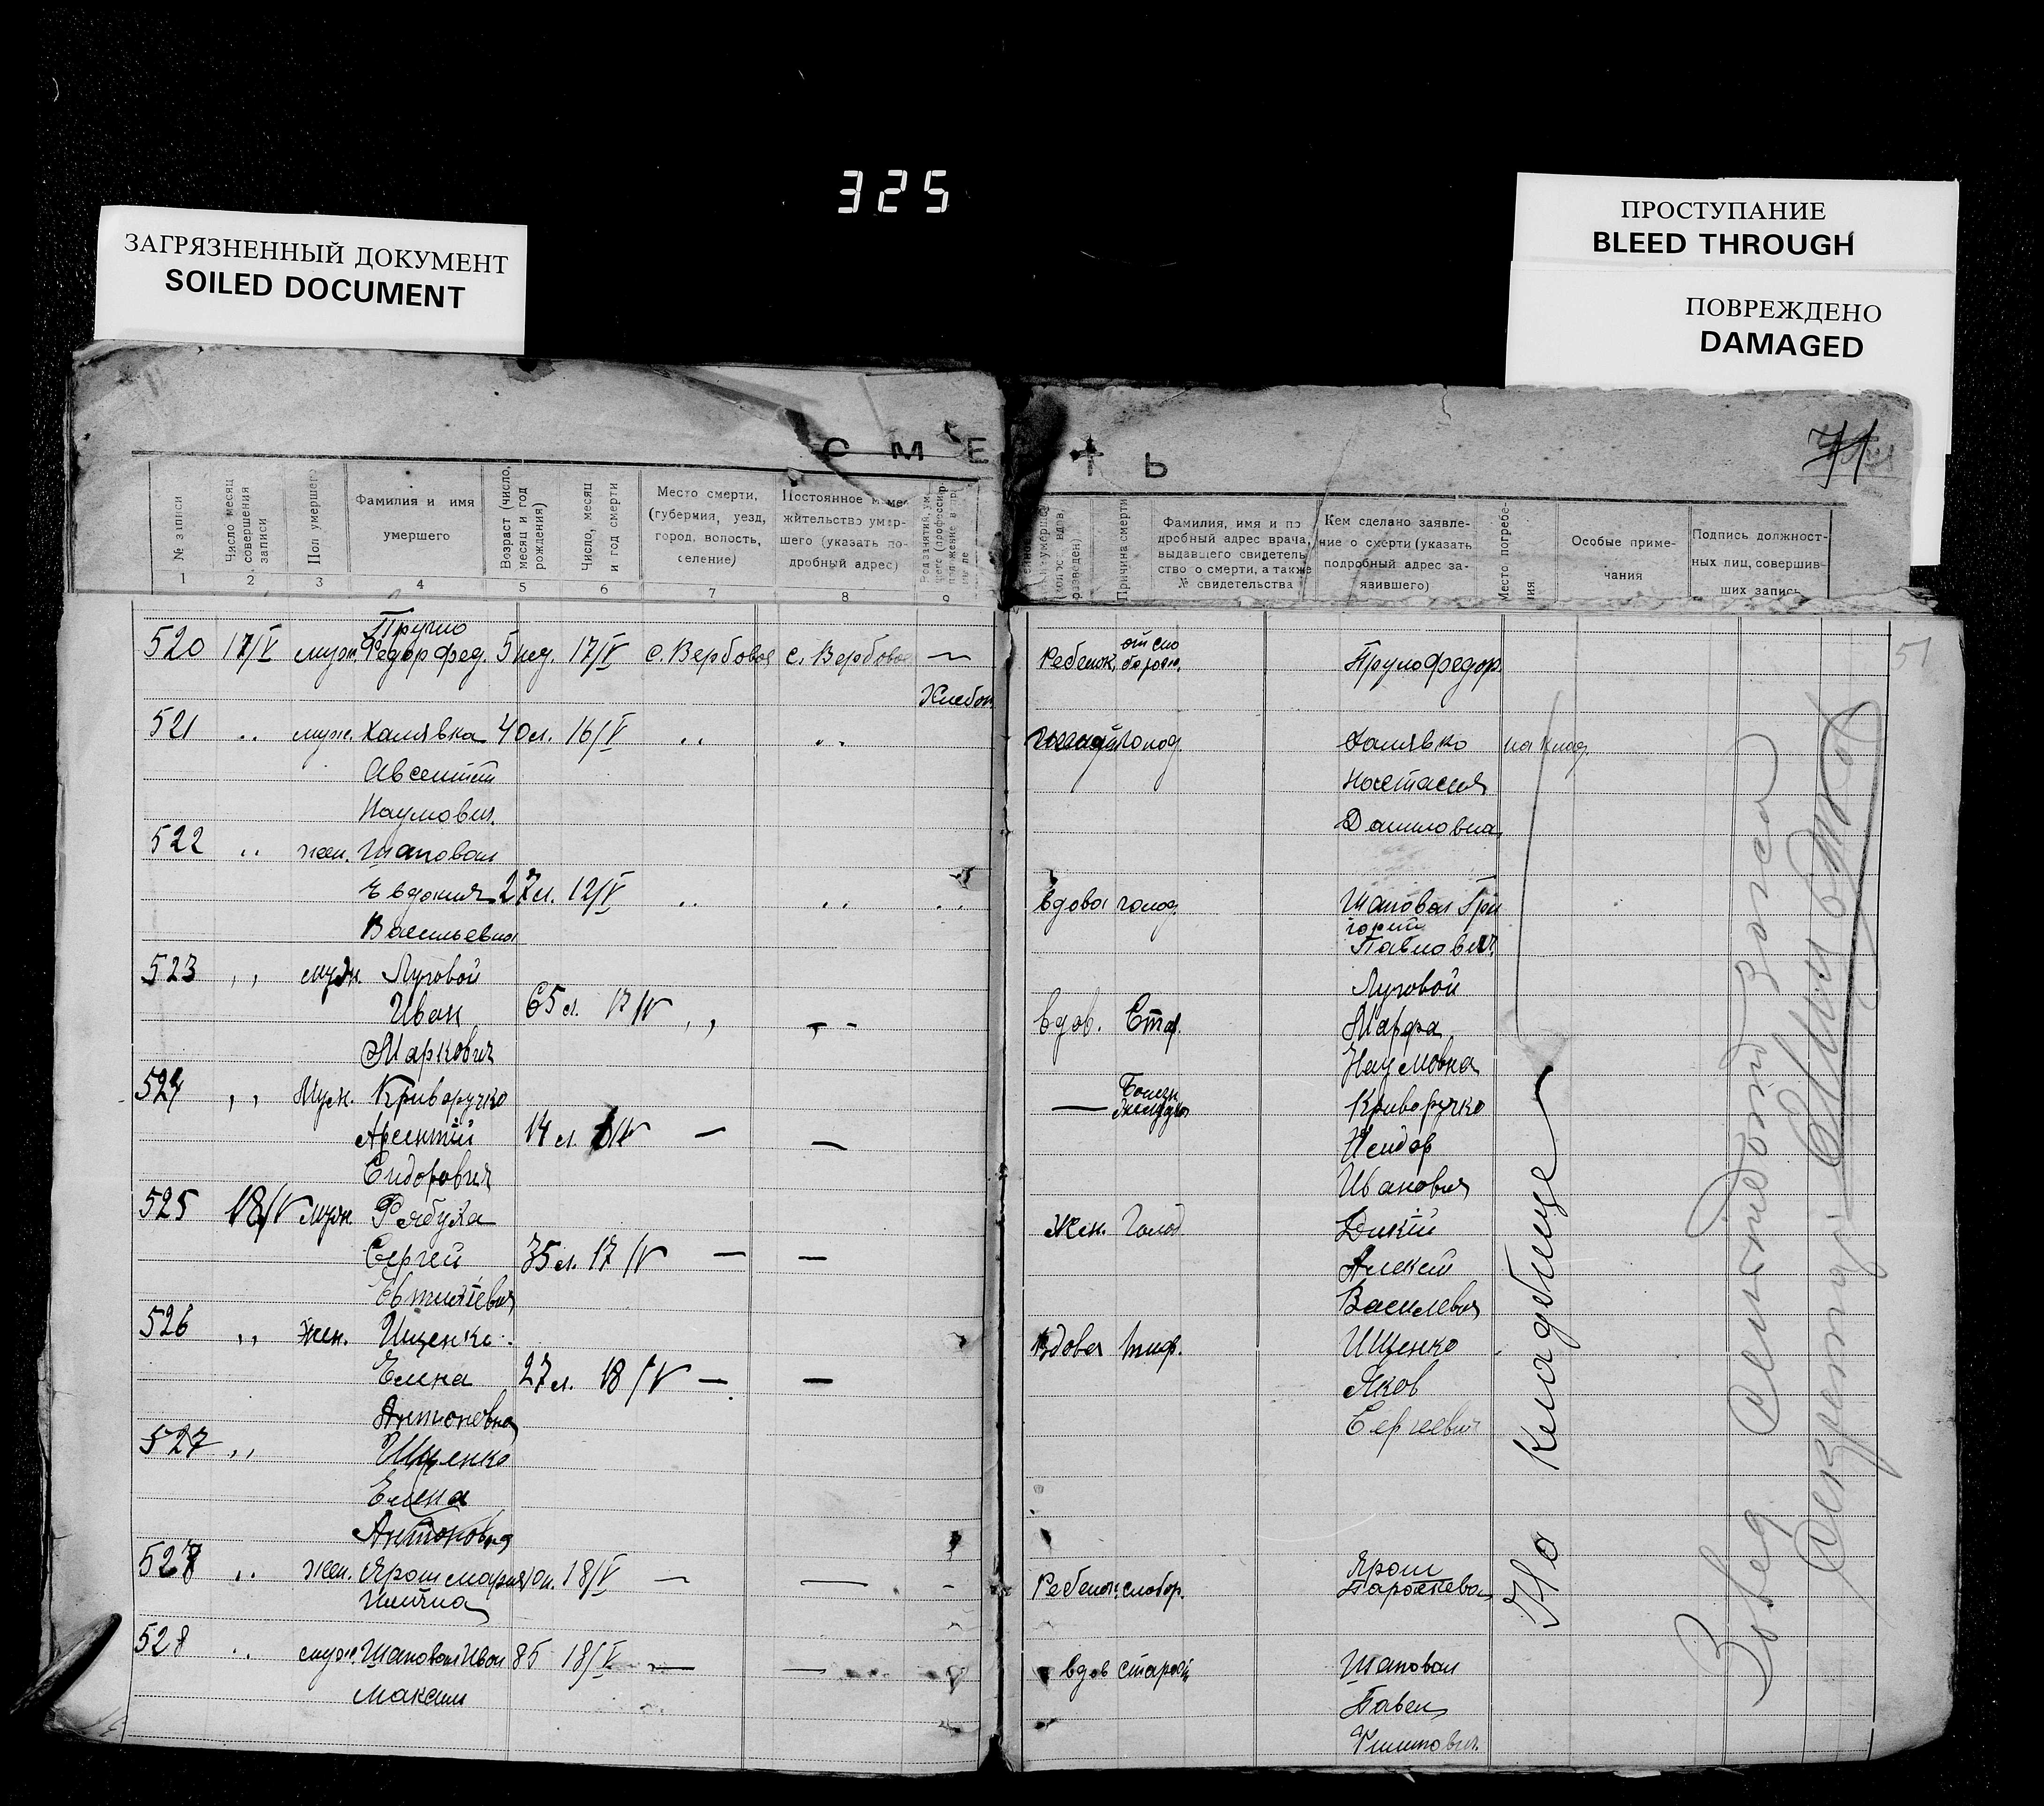 325
ЗАГРЯЗНЕННЫЙ ДОКУМЕНТ
SOILED DOCUMENT
ПРОСТУПАНИЕ
BLEED THROUGH
ПОВРЕЖДЕНО
DAMAGED
71
51
С М Е Т Ь
№ записи
Число месяц совершения записи
Пол умершего
Фамилия и имя умершего
Возраст (число, месяц и год рождения)
Число, месяц и год смерти
Место смерти, (губерния, уезд, город, волость, селение)
Постоянное место жительство умершего (указать подробный адрес)
Причина смерти
Фамилия, имя и подробный адрес врача, выдавшего свидетельство о смерти, а также № свидетельства
Кем сделано заявление о смерти (указать подробный адрес заявившего)
Место погребения
Особые примечания
Подпись должностных лиц, совершивших запись
1 2 3 4 5 6 7 8 9
Пругло
520 17/V муж. Федор Фед. 5 нед. 17/V с. Вербовое с. Вербовое —
Ребенок, Федор
Хлебоп.
521 .. муж. Халявка 40 л. 16/V .. ..
голод. Халявко на клад.
Авсентий Настасия
Наумович. Даниловна
522 .. жен. Шаповал
Евдокия 27 л. 12/V .. .. ..
вдова голод. Шаповал Гри
горий
Васильевна Павлович.
523 ,, муж. Луговой Луговой
Иван 65 л. 17/V ,, — вдов. Стар. Марфа
Маркович Наумовна
524 ,, Муж. Криворучко — Болезн. желудка Криворучко
Арсентий 14 л. — — Исидор
Сидорович Иванович
525 18/V муж. Рябуха жен. Голод Дикий
Сергей 35 л. 17/V — — Алексей
Евтихіевич Василевич
526 ,, жен. Ищенко вдова тиф. Ищенко
Елена 27 л. 18/V — — Яков
Антоновна Сергеевич
527 ,, Ищенко
Елена
Антоновна
527 .. жен. Ярош Мария 18/V — — —
Ребенок слабор. Ярош Параскева
Илична
528 .. муж. Шаповал Иван 85 18/V — —
вдов старость Шаповал
Максим Павел
Филипович.
На кладбище
Завед
Секретарь